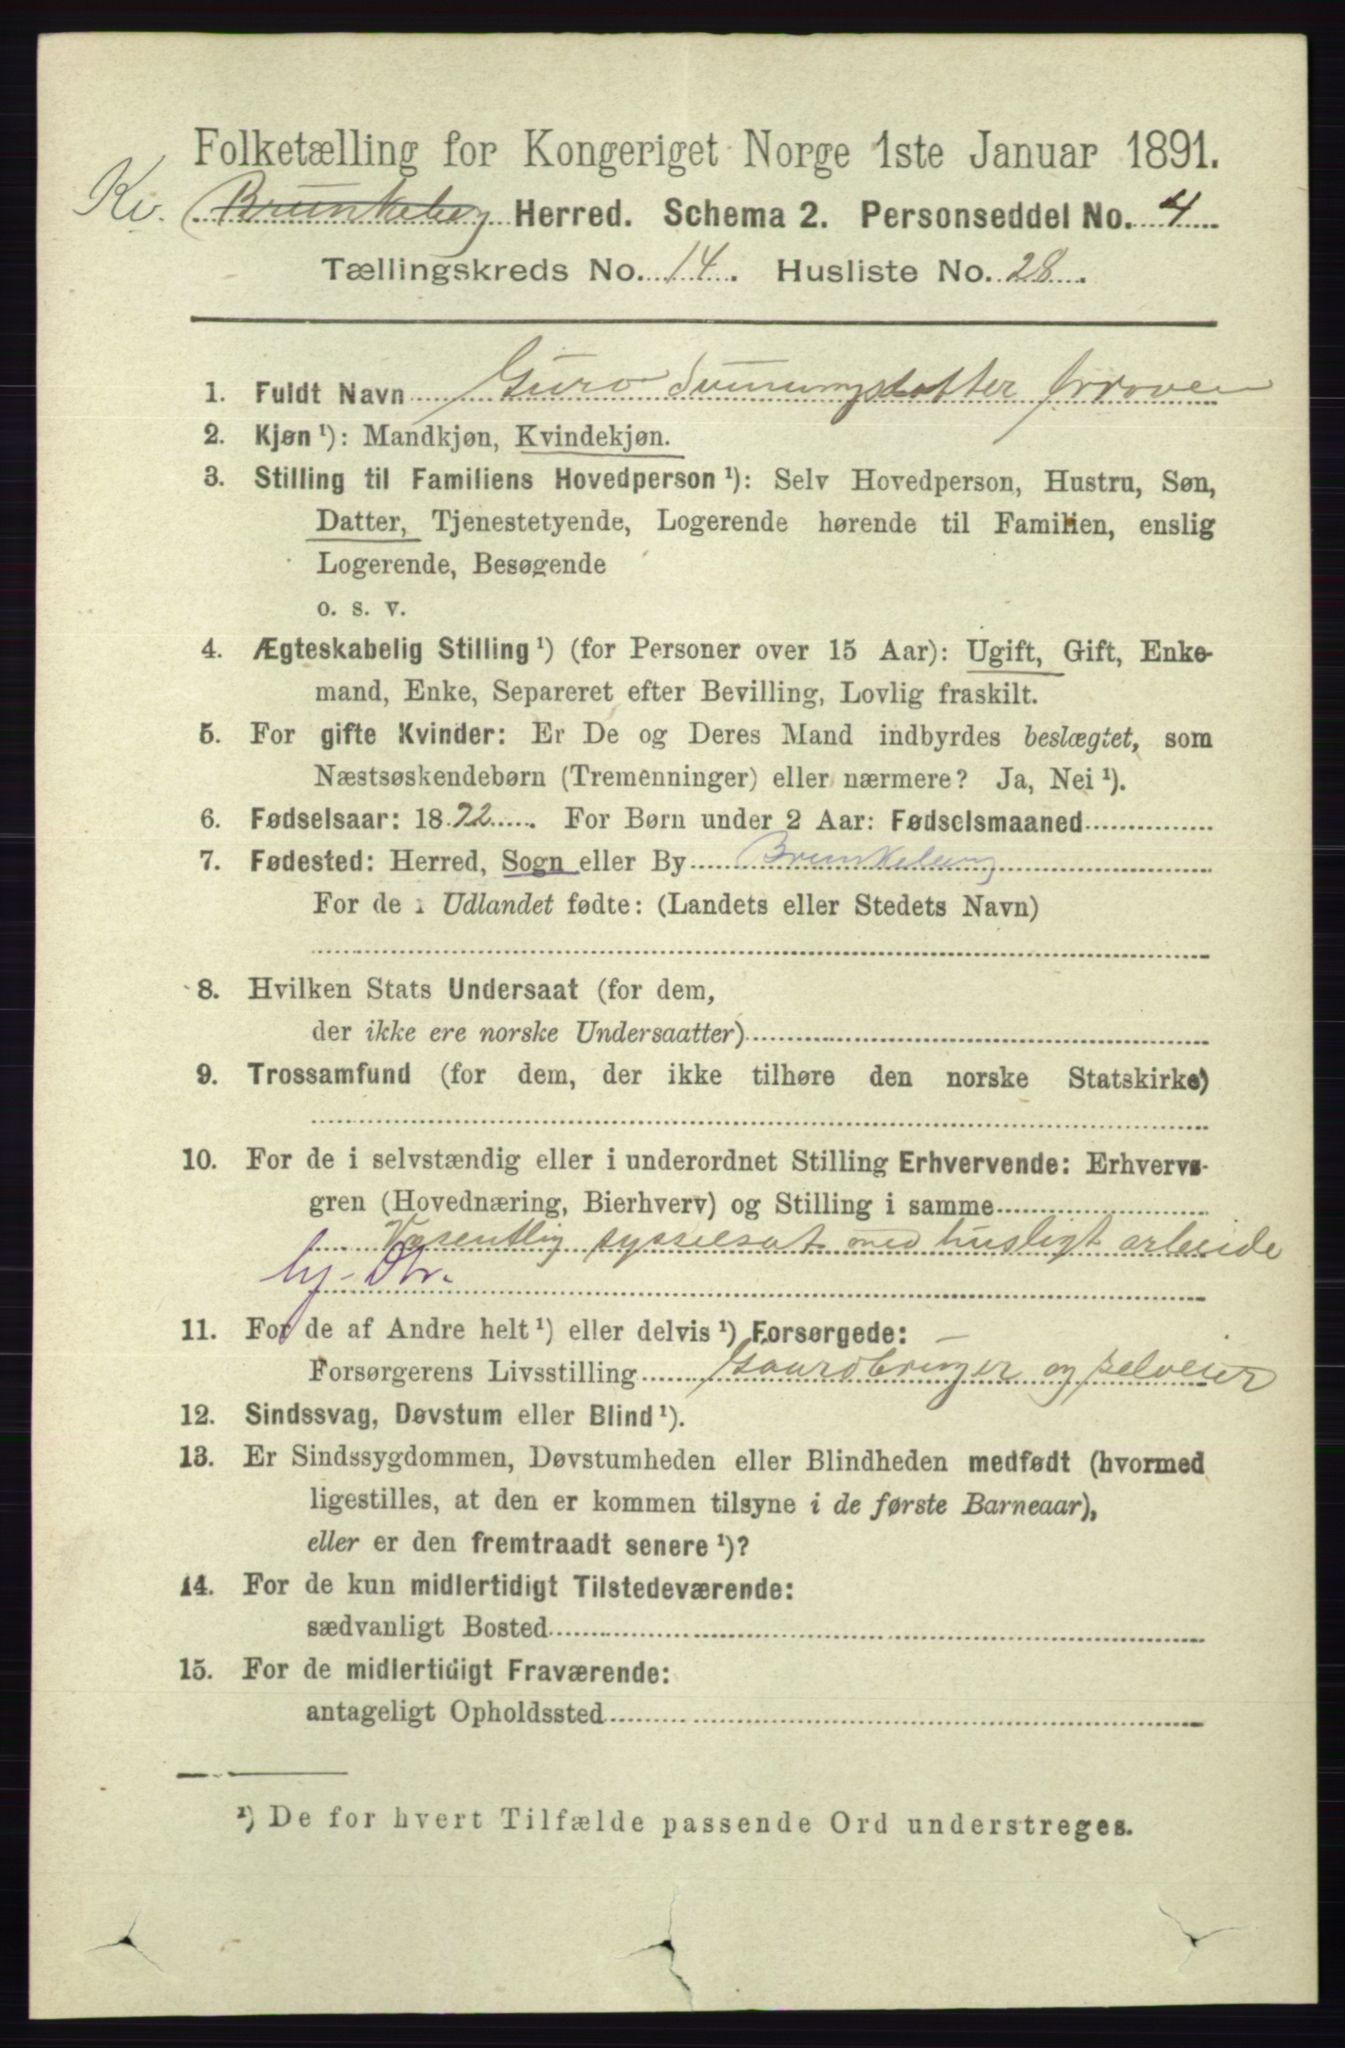 Folketælling for Kongeriget Norge 1ste Januar 1891.
Kv. Brunkeberg Herred. Schema 2. Personseddel No. 4
Tællingskreds No. 14. Husliste No. 28.
1. Fuldt Navn Guro
2. Kjøn ¹): Mandkjøn, Kvindekjøn.
3. Stilling til Familiens Hovedperson ¹): Selv Hovedperson, Hustru, Søn,
Datter, Tjenestetyende, Logerende hørende til Familien, enslig
Logerende, Besøgende
o. s. v.
4. Ægteskabelig Stilling ¹) (for Personer over 15 Aar): Ugift, Gift, Enke-
mand, Enke, Separeret efter Bevilling, Lovlig fraskilt.
5. For gifte Kvinder: Er De og Deres Mand indbyrdes beslægtet, som
Næstsøskendebørn (Tremenninger) eller nærmere? Ja, Nei ¹).
6. Fødselsaar: 1872. For Børn under 2 Aar: Fødselsmaaned
7. Fødested: Herred, Sogn eller By Brunkeberg
For de i Udlandet fødte: (Landets eller Stedets Navn)
8. Hvilken Stats Undersaat (for dem,
der ikke ere norske Undersaatter)
9. Trossamfund (for dem, der ikke tilhøre den norske Statskirke)
10. For de i selvstændig eller i underordnet Stilling Erhvervende: Erhvervs-
gren (Hovednæring, Bierhverv) og Stilling i samme
Væsentlig sysselsat med husligt arbeide
hj-Dtr.
11. For de af Andre helt ¹) eller delvis ¹) Forsørgede: —
Forsørgerens Livsstilling Gaardbruger og selveier
12. Sindssvag, Døvstum eller Blind ¹).
13. Er Sindssygdommen, Døvstumheden eller Blindheden medfødt (hvormed
ligestilles, at den er kommen tilsyne i de første Barneaar),
eller er den fremtraadt senere ¹)?
14. For de kun midlertidigt Tilstedeværende:
sædvanligt Bosted
15. For de midlertidigt Fraværende:
antageligt Opholdssted
¹) De for hvert Tilfælde passende Ord understreges.